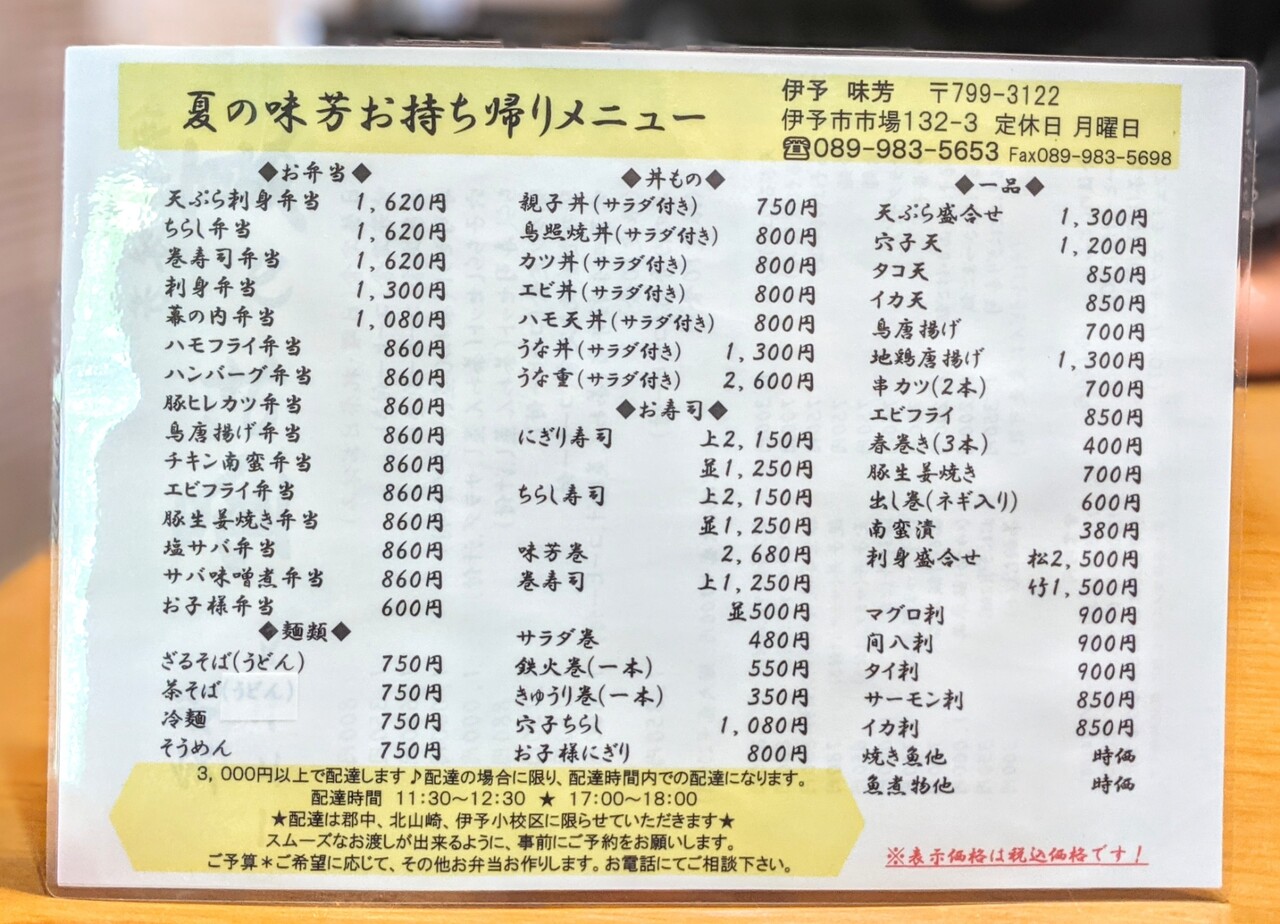 夏の味芳お持ち帰りメニュー
伊予 味芳 〒799-3122
伊予市市場132-3 定休日 月曜日
☎089-983-5653 Fax089-983-5698
◆お弁当◆
天ぷら刺身弁当 1,620円
ちらし弁当 1,620円
巻寿司弁当 1,620円
刺身弁当 1,300円
幕の内弁当 1,080円
ハモフライ弁当 860円
ハンバーグ弁当 860円
豚ヒレカツ弁当 860円
鳥唐揚げ弁当 860円
チキン南蛮弁当 860円
エビフライ弁当 860円
豚生姜焼き弁当 860円
塩サバ弁当 860円
サバ味噌煮弁当 860円
お子様弁当 600円
◆麺類◆
ざるそば(うどん) 750円
茶そば(うどん) 750円
冷麺 750円
そうめん 750円
◆丼もの◆
親子丼(サラダ付き) 750円
鳥照焼丼(サラダ付き) 800円
カツ丼(サラダ付き) 800円
エビ丼(サラダ付き) 800円
ハモ天丼(サラダ付き) 800円
うな丼(サラダ付き) 1,300円
うな重(サラダ付き) 2,600円
◆お寿司◆
にぎり寿司 上2,150円
並1,250円
ちらし寿司 上2,150円
並1,250円
味芳巻 2,680円
巻寿司 上1,250円
並500円
サラダ巻 480円
鉄火巻(一本) 550円
きゅうり巻(一本) 350円
穴子ちらし 1,080円
お子様にぎり 800円
◆一品◆
天ぷら盛合せ 1,300円
穴子天 1,200円
タコ天 850円
イカ天 850円
鳥唐揚げ 700円
地鶏唐揚げ 1,300円
串カツ(2本) 700円
エビフライ 850円
春巻き(3本) 400円
豚生姜焼き 700円
出し巻(ネギ入り) 600円
南蛮漬 380円
刺身盛合せ 松2,500円
竹1,500円
マグロ刺 900円
間八刺 900円
タイ刺 900円
サーモン刺 850円
イカ刺 850円
焼き魚他 時価
魚煮物他 時価
3,000円以上で配達します♪配達の場合に限り、配達時間内での配達になります。
配達時間 11:30～12:30 ★ 17:00～18:00
★配達は郡中、北山崎、伊予小校区に限らせていただきます★
スムーズなお渡しが出来るように、事前にご予約をお願いします。
ご予算＊ご希望に応じて、その他お弁当お作りします。お電話にてご相談下さい。
※表示価格は税込価格です！